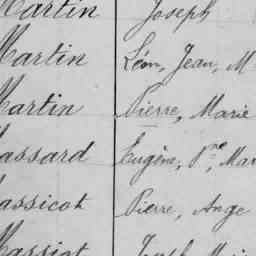 Martin Joseph
Martin Léon, Jean, M
Martin Pierre, Marie
Massard Eugène, Pne, Mar
Massicot Pierre, Ange